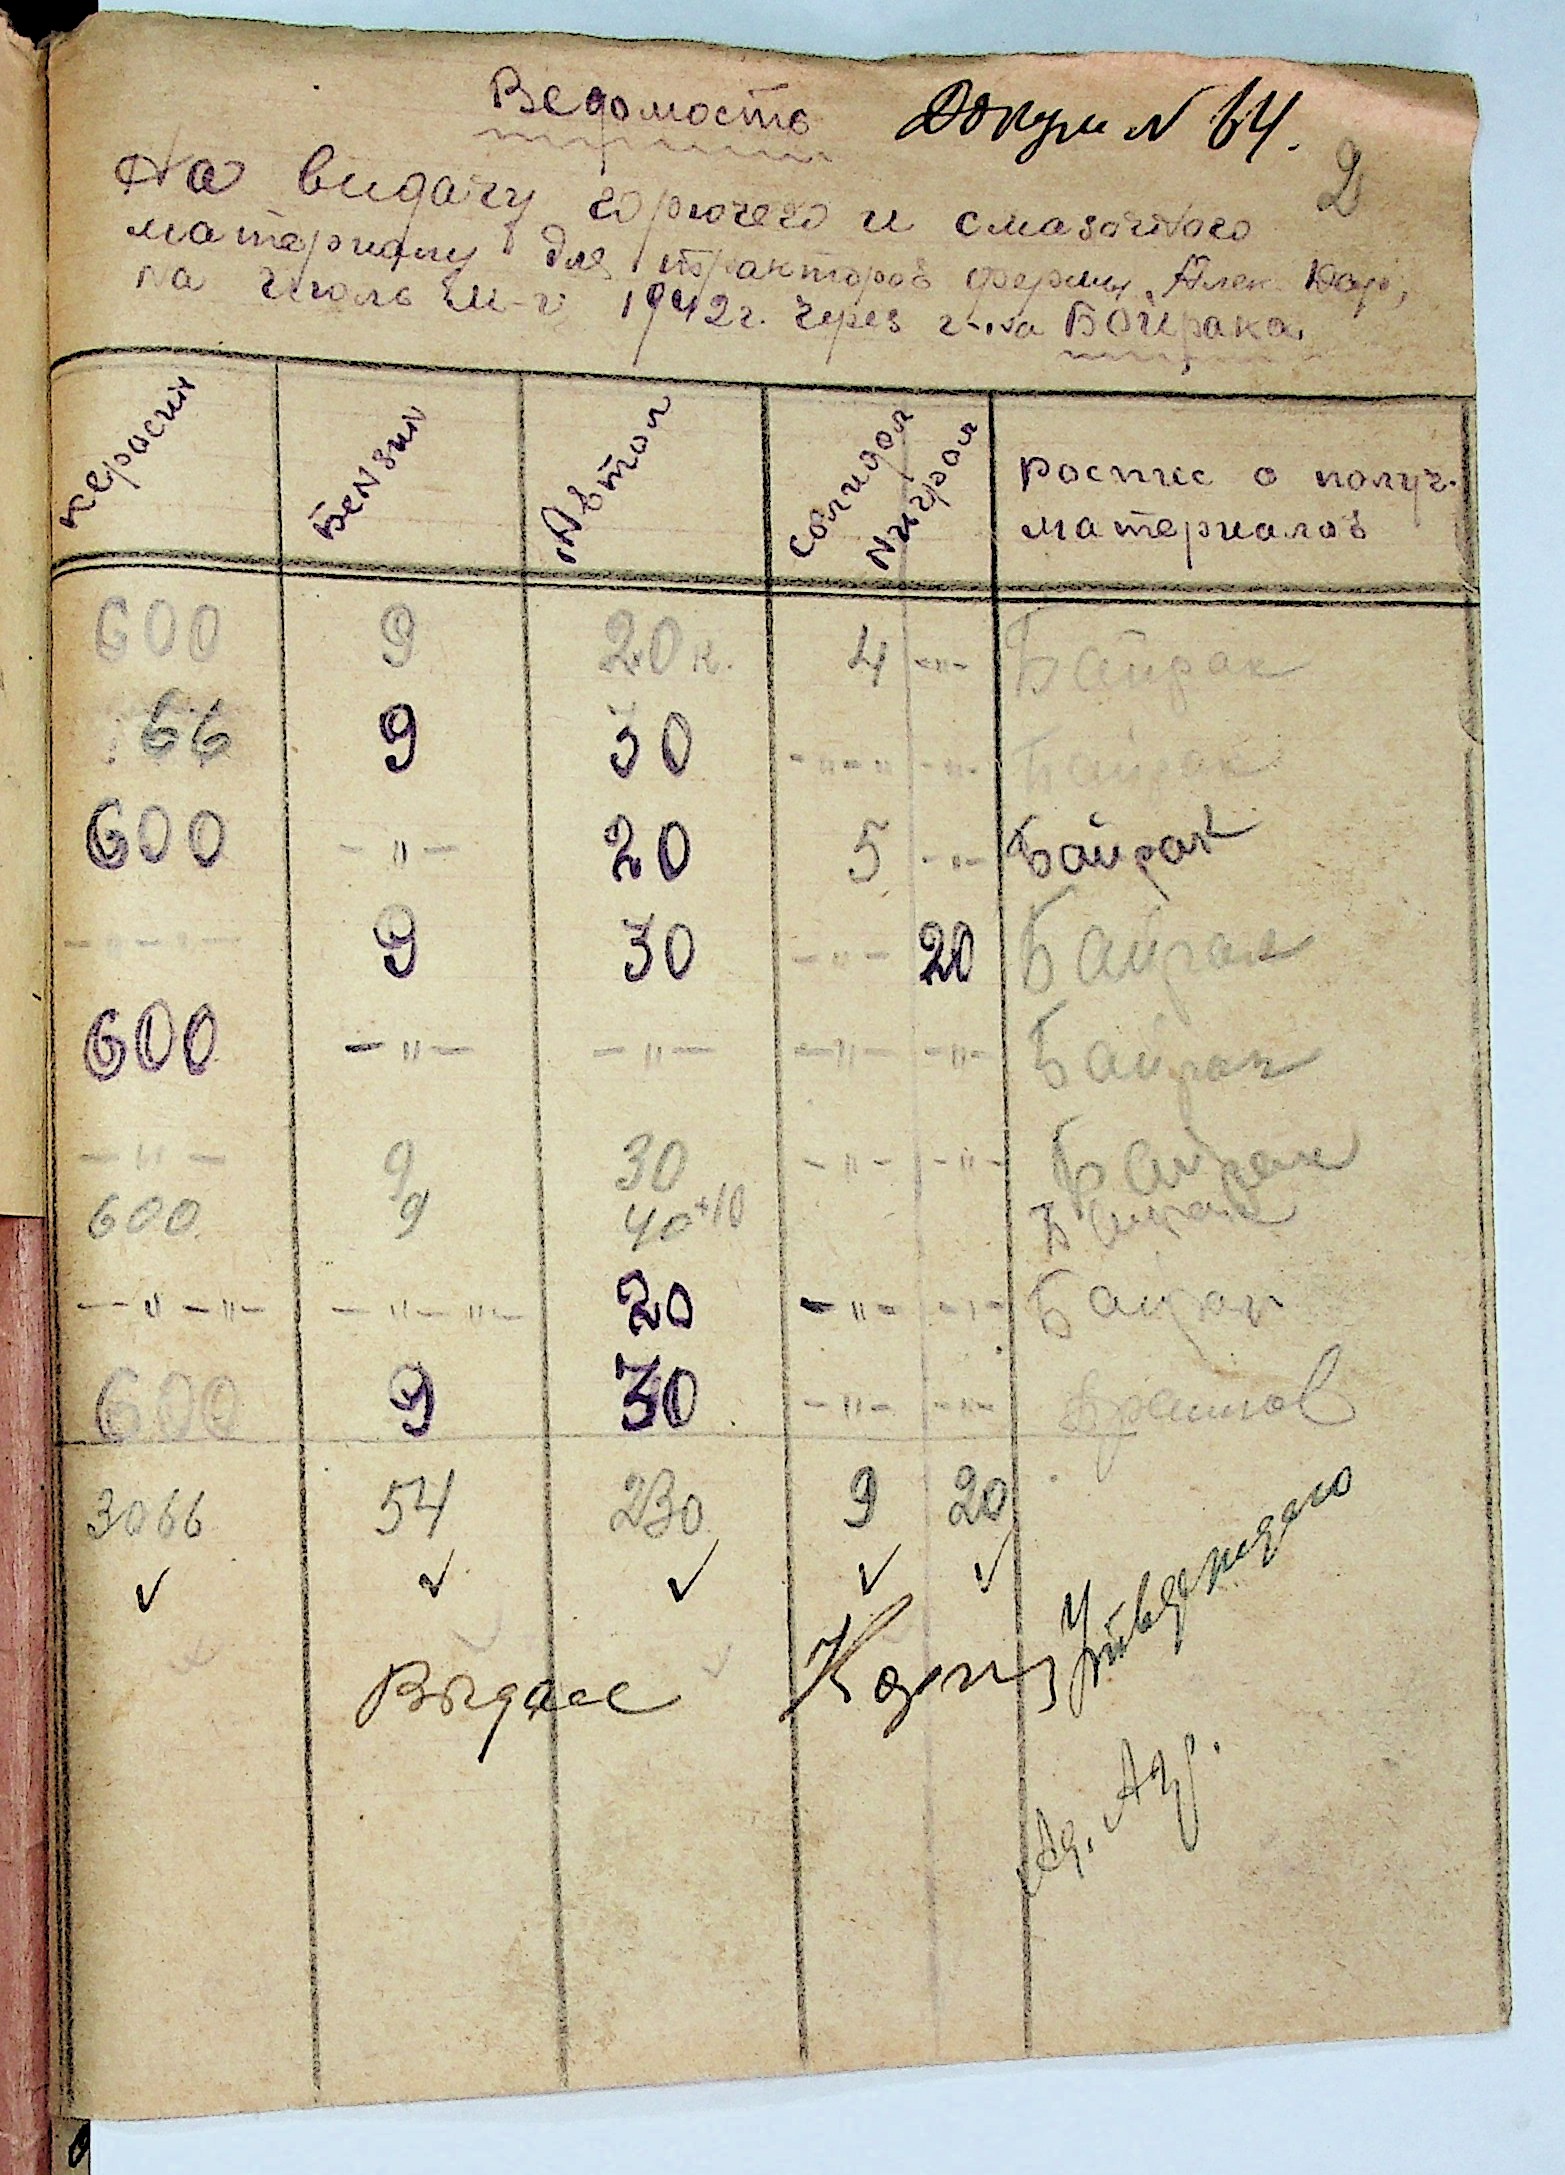 Ведомость Докум N 64.
2
На видачу горючего и смазочного
материалу для тракторов фермы Алек Дар,
на июль м-ц 1942г. через г-на Байрака.
керосин Бензин Автол Солидол Nигрол Роспис о получ. материалов
600 9 20 к. 4 -"- Байрак
66 9 30 -"-" -"- Байрак
600 -"- 20 5 -"- Байрак
-"-"- 9 30 -"- 20 Байрак
600 -"- -"- -"- -"- Байрак
-"- 9 30 -"- -"- Байрак
600 9 40+10 Байрак
-"-"- -"-"- 20 -"- -"- Байрак
600 9 30 -"- -"-
3066 54 230 9 20
✓ ✓ ✓ ✓ ✓
Выдал
Утверждаю